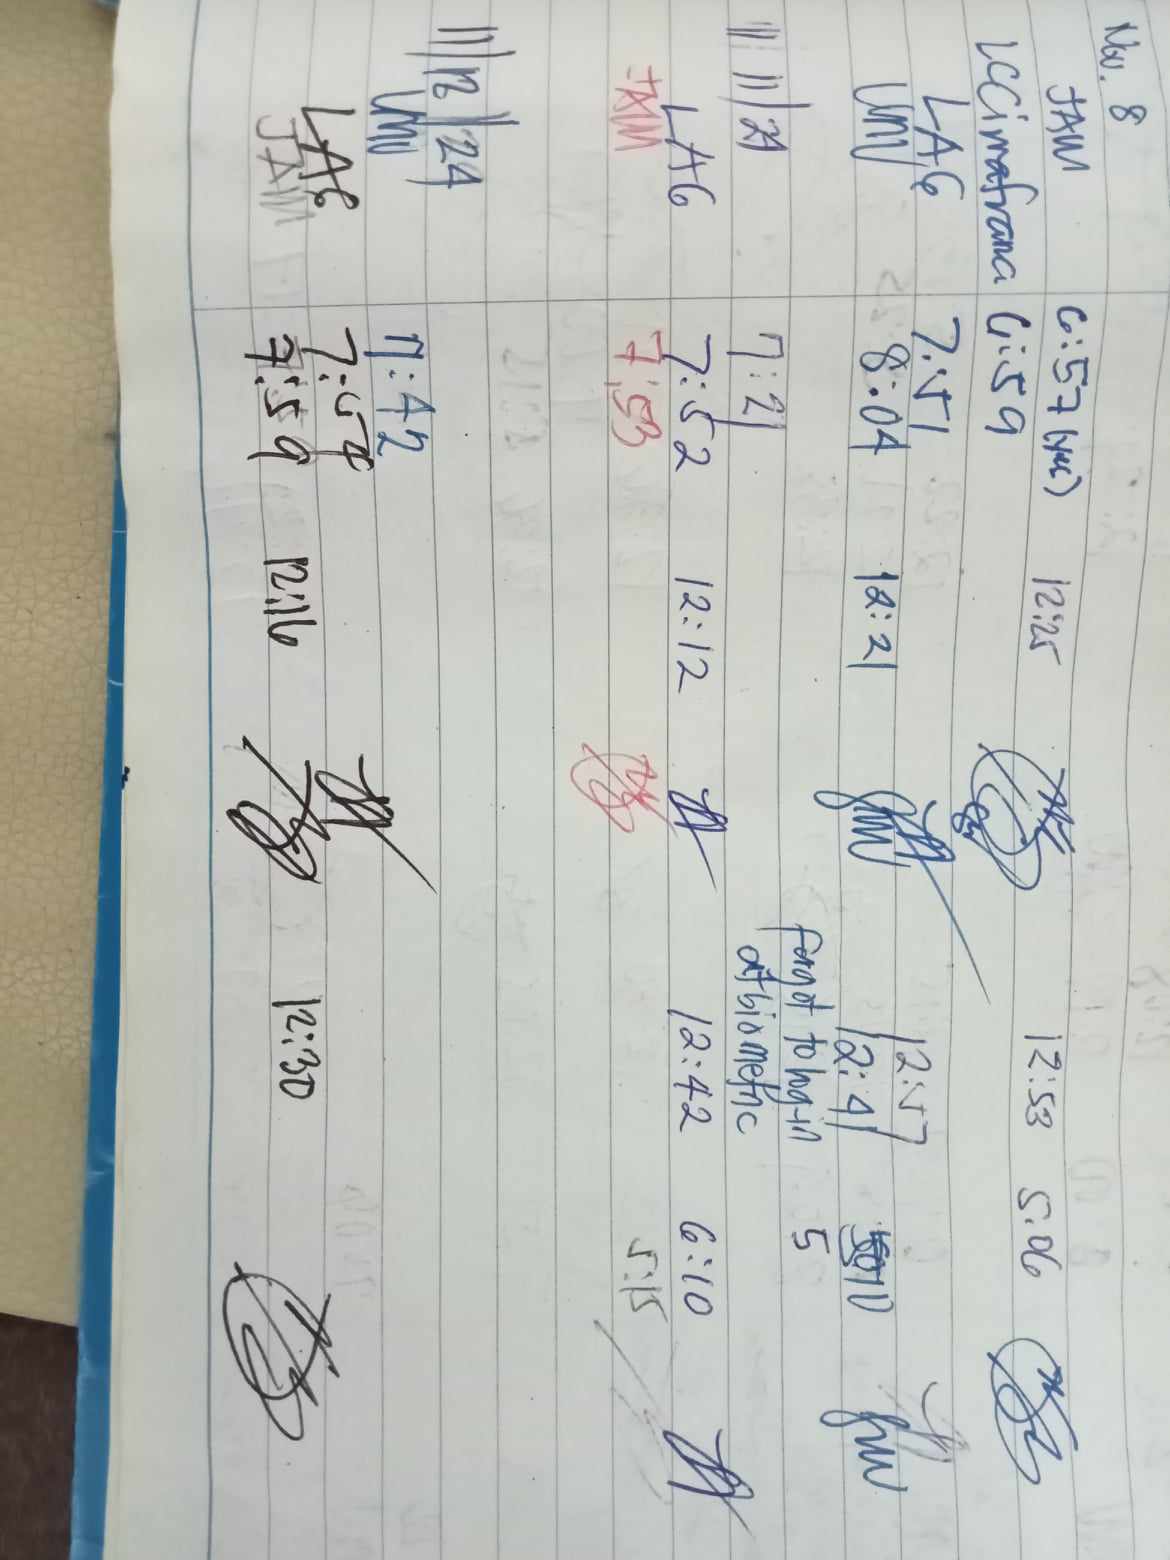 Nov. 8
JAM 6:57 12:25 12:53 5:06
LCCimafranca 6:59
LAG 7:51 12:57
8:04 12:21 12:41
forgot to log-in 5
at biometric
11/11/24 7:21
LAG 7:52 12:12 12:42 6:10
JAM 7:53 5:15
11/12/24
7:42
LAG 7:54
JAM 7:59 12:16 12:30